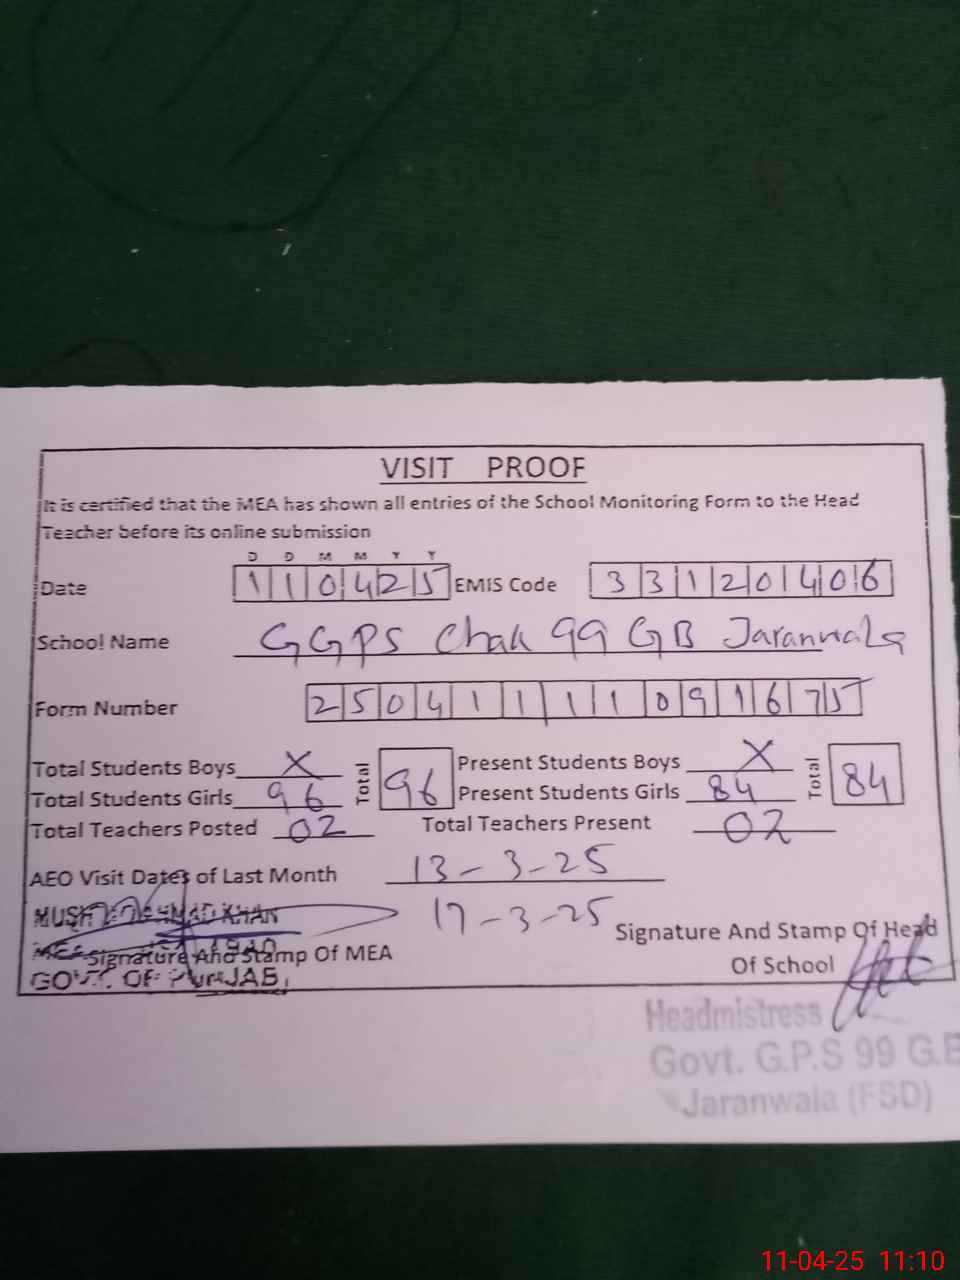 VISIT PROOF
It is certified that the MEA has shown all entries of the School Monitoring Form to the Head
Teacher before its online submission
D D M M Y Y
Date 110425 EMIS Code 33120406
School Name GGPS Chak 99 GB Jaranwala
Form Number 25041111091675
Total Students Boys X Total 96 Present Students Boys X Total 84
Total Students Girls 96 Present Students Girls 84
Total Teachers Posted 02 Total Teachers Present 02
AEO Visit Dates of Last Month 13-3-25
17-3-25
KHAN
MEA
Signature And Stamp Of MEA
GOVT. OF PUNJAB
Signature And Stamp Of Head
Of School
Headmistress
Govt. G.P.S 99 G.B
Jaranwala (FSD)
11-04-25 11:10